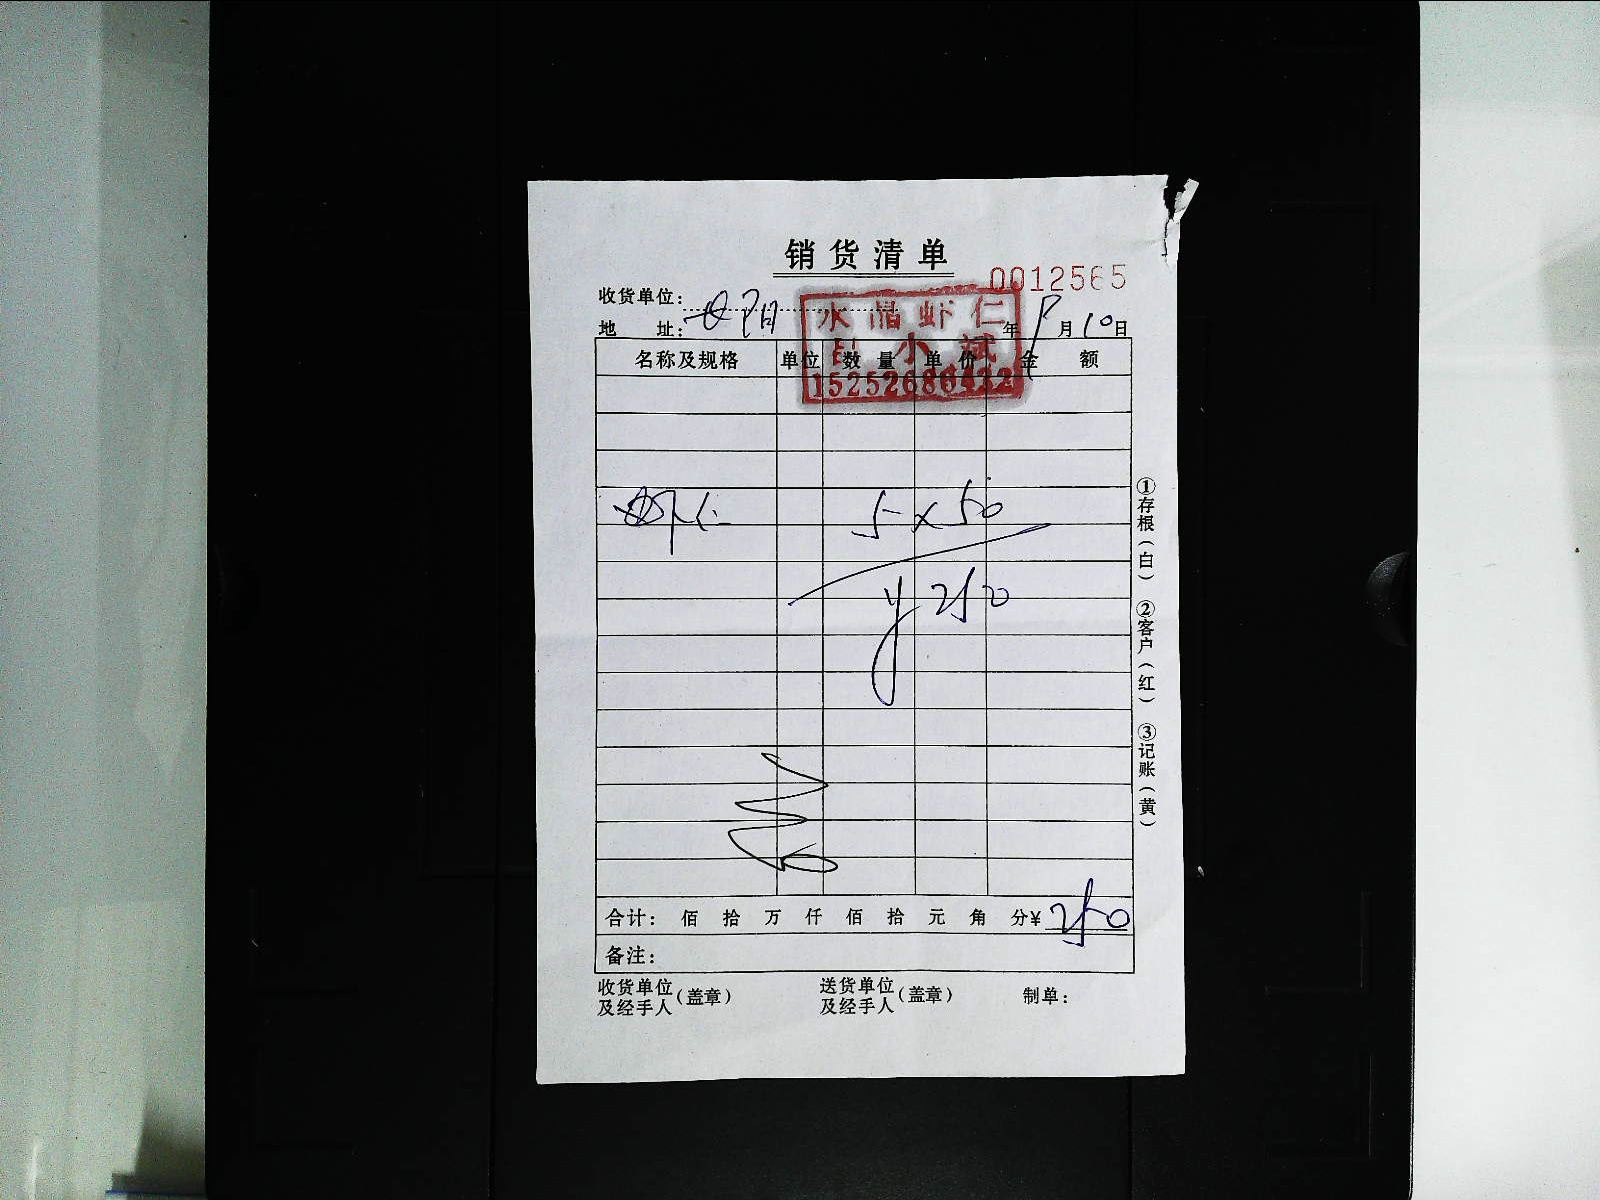 销货清单
0012565
收货单位:
水晶虾仁
地 址: 年 月10日
小斌
名称及规格 单位 数量 单价 金额
15252686432
虾仁 5×50
¥250
合计: 佰 拾 万 仟 佰 拾 元 角 分¥250
备注:
收货单位及经手人(盖章) 送货单位及经手人(盖章) 制单:
①存根(白) ②客户(红) ③记账(黄)